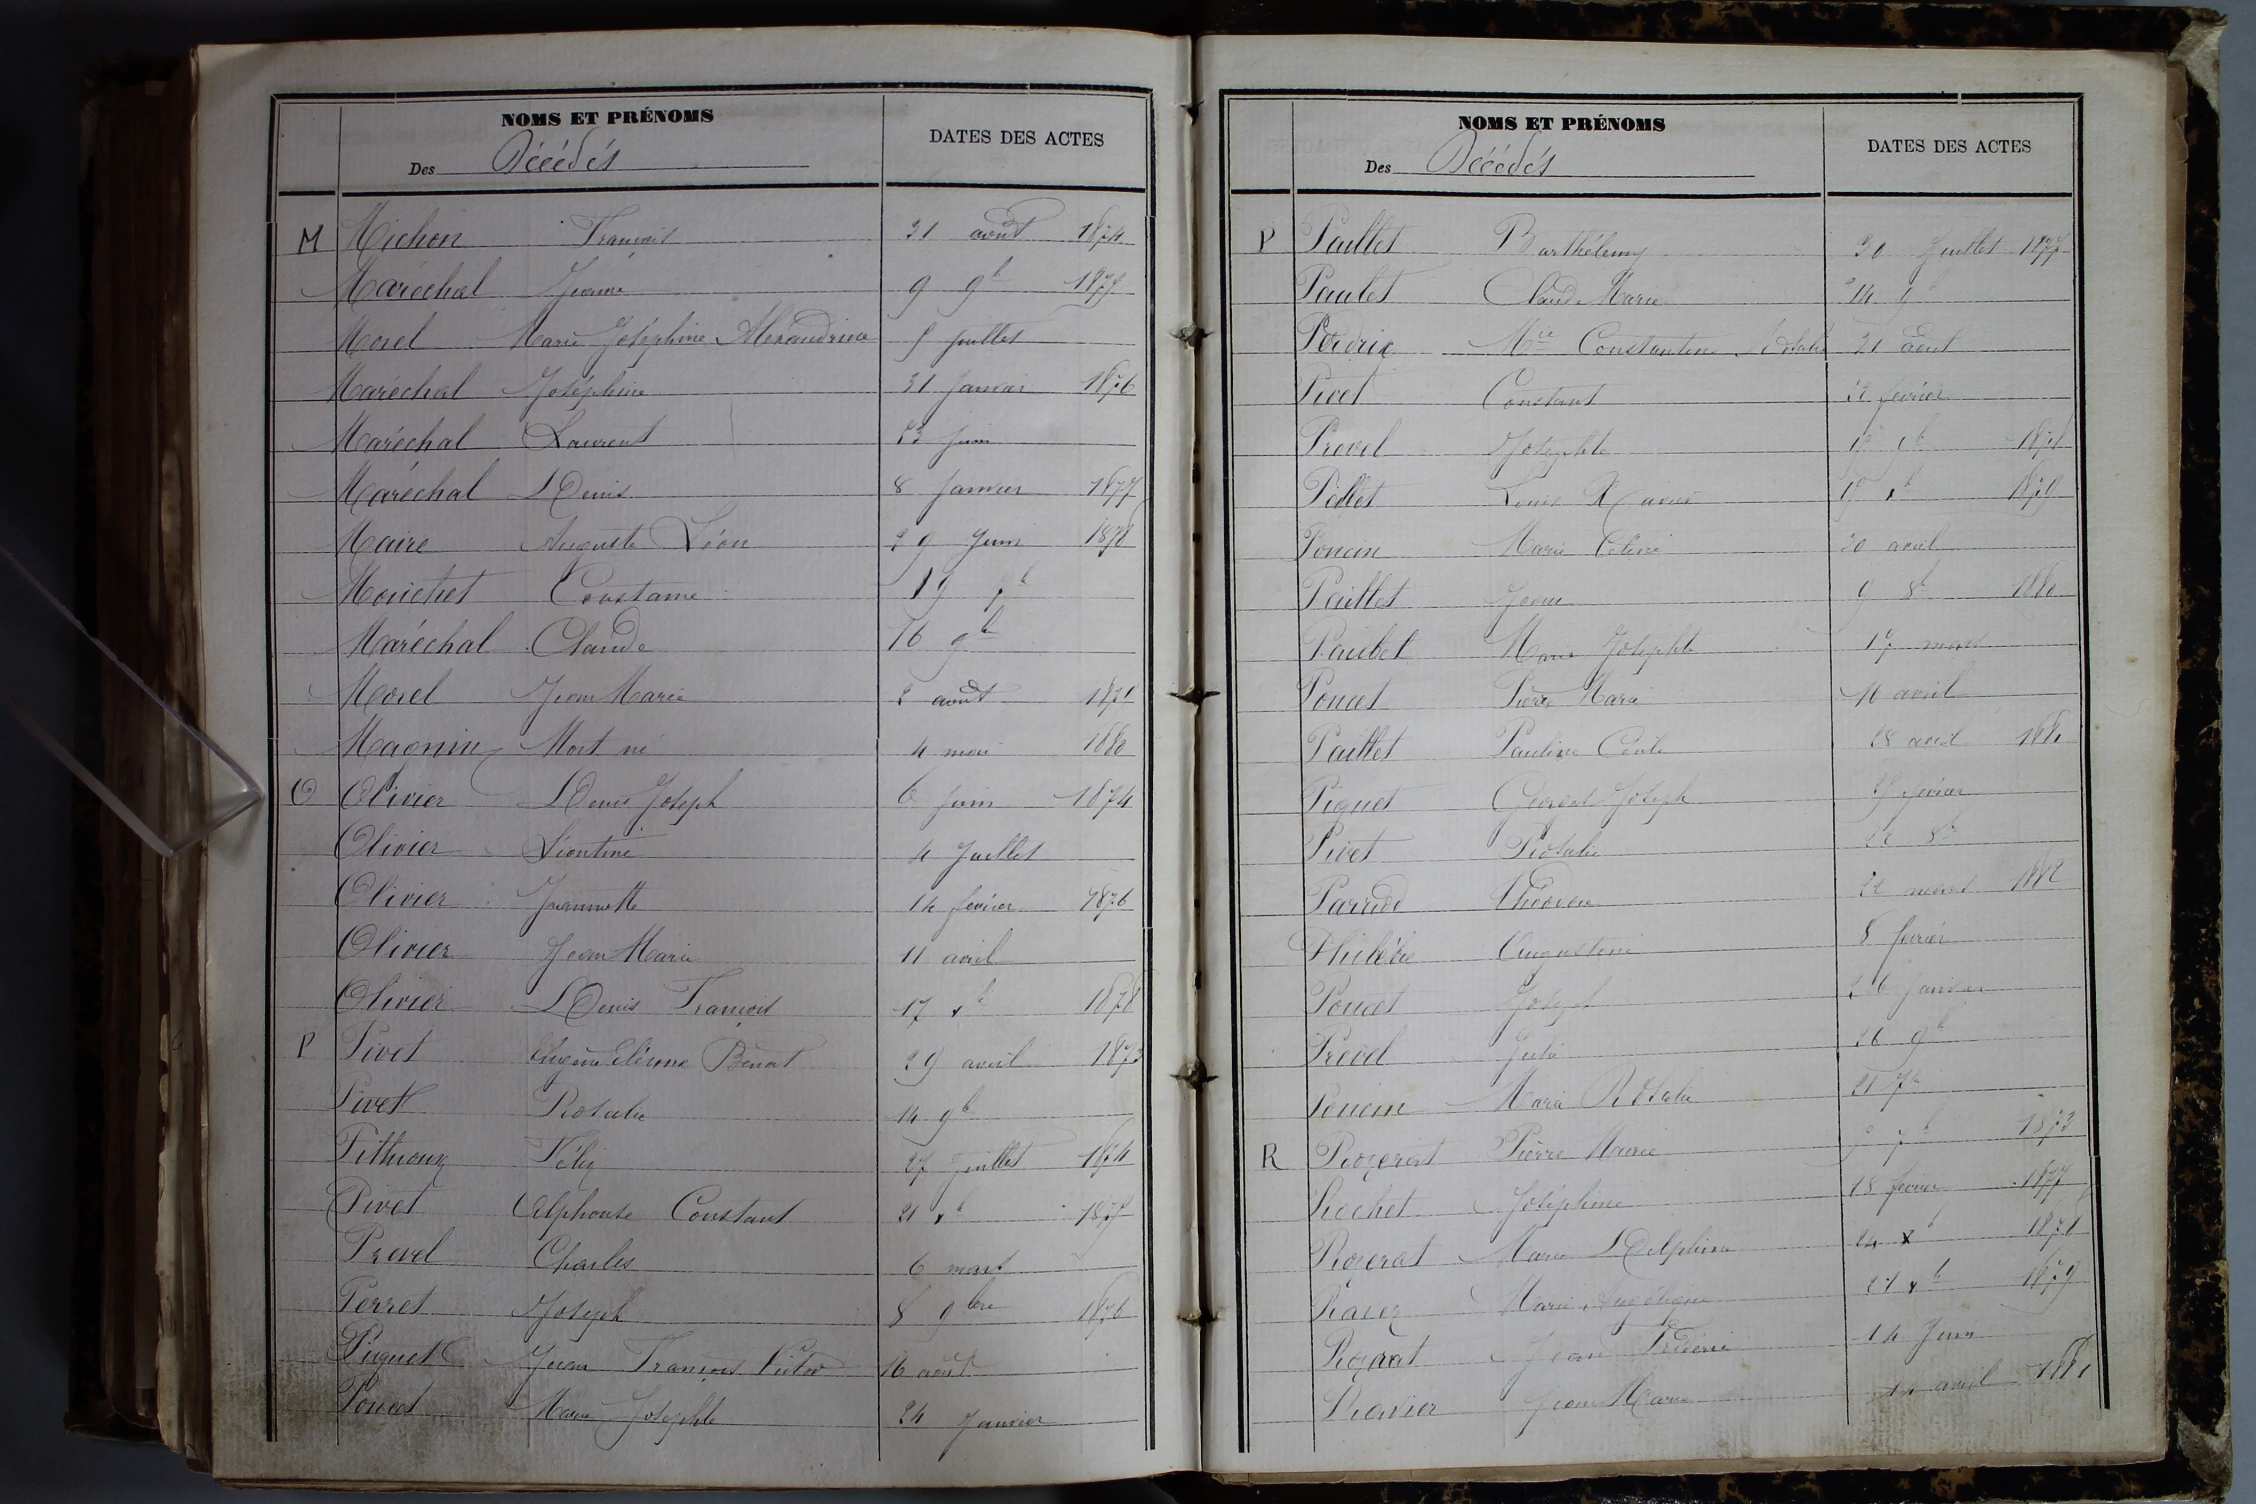 NOMS ET PRÉNOMS
DATES DES ACTES
Des Décédés
M Michon François 31 août 1874
Maréchal Jeanne 9 9b
Morel Marie Joséphine Alexandrine juillet
Maréchal Joséphine 31 Janvier 1876
Maréchal Laurent 23 Juin
Maréchal Denis 8 Janvier 1877
Maire Auguste Léon 29 Juin 1878
Mouchet Constance 19 7b
Maréchal Claude 16 9b
Morel Jean Marie 2 août
Magnin Mort né 4 mai 1880
O Olivier Denis Joseph 6 Juin 1874
Olivier Léontine 4 Juillet
Olivier Jeannette 14 février 1876
Olivier Jean Marie 11 avril
Olivier Denis François 17 xb 1878
P Pivet Eugène Etienne Benoit 29 avril 1873
Pivet Rosalie 14 9b
Pithioux Félix 27 Juillet 1874
Pivet Alphonse Constant 21 xb 1875
Prevel Charles 6 mars
Perret Joseph 8 9bre 1876
Piquet Jean François Victor 16 août
Poncet Marie Josephte 24 Janvier
NOMS ET PRÉNOMS
DATES DES ACTES
Des Décédés
P Paillet Barthélemy 30 Juillet 1877
Paulet Claude Marie 14
Perdrix Mie Constantine 21 août
Pivet Constant février
Prevel Josephte
Pillet Louis Xavier 1879
Poncin Marie Céline 30 avril
Paillet Jean 9 8b 1880
Marie Josephte 17 mars
Poncet Pierre Marie 10 avril
Paillet Pauline 28 avril 1881
Piquet Joseph février
Pivet Rosalie 22 8b
22 mars 1882
Augustine 8 février
Poncet Joseph 26 Janvier
Prevel Julie 26 9b
Poncin Marie Rosalie 21 7b
R Rozerat Pierre Marie 7b 1873
Rochet Joséphine 18 février 1877
Rozerat Marie Delphine 24 xb 1878
Marie Angélique 27 xb 1879
Rozerat Jean Frédéric 14 Juin
Jean Marie 14 avril 1881